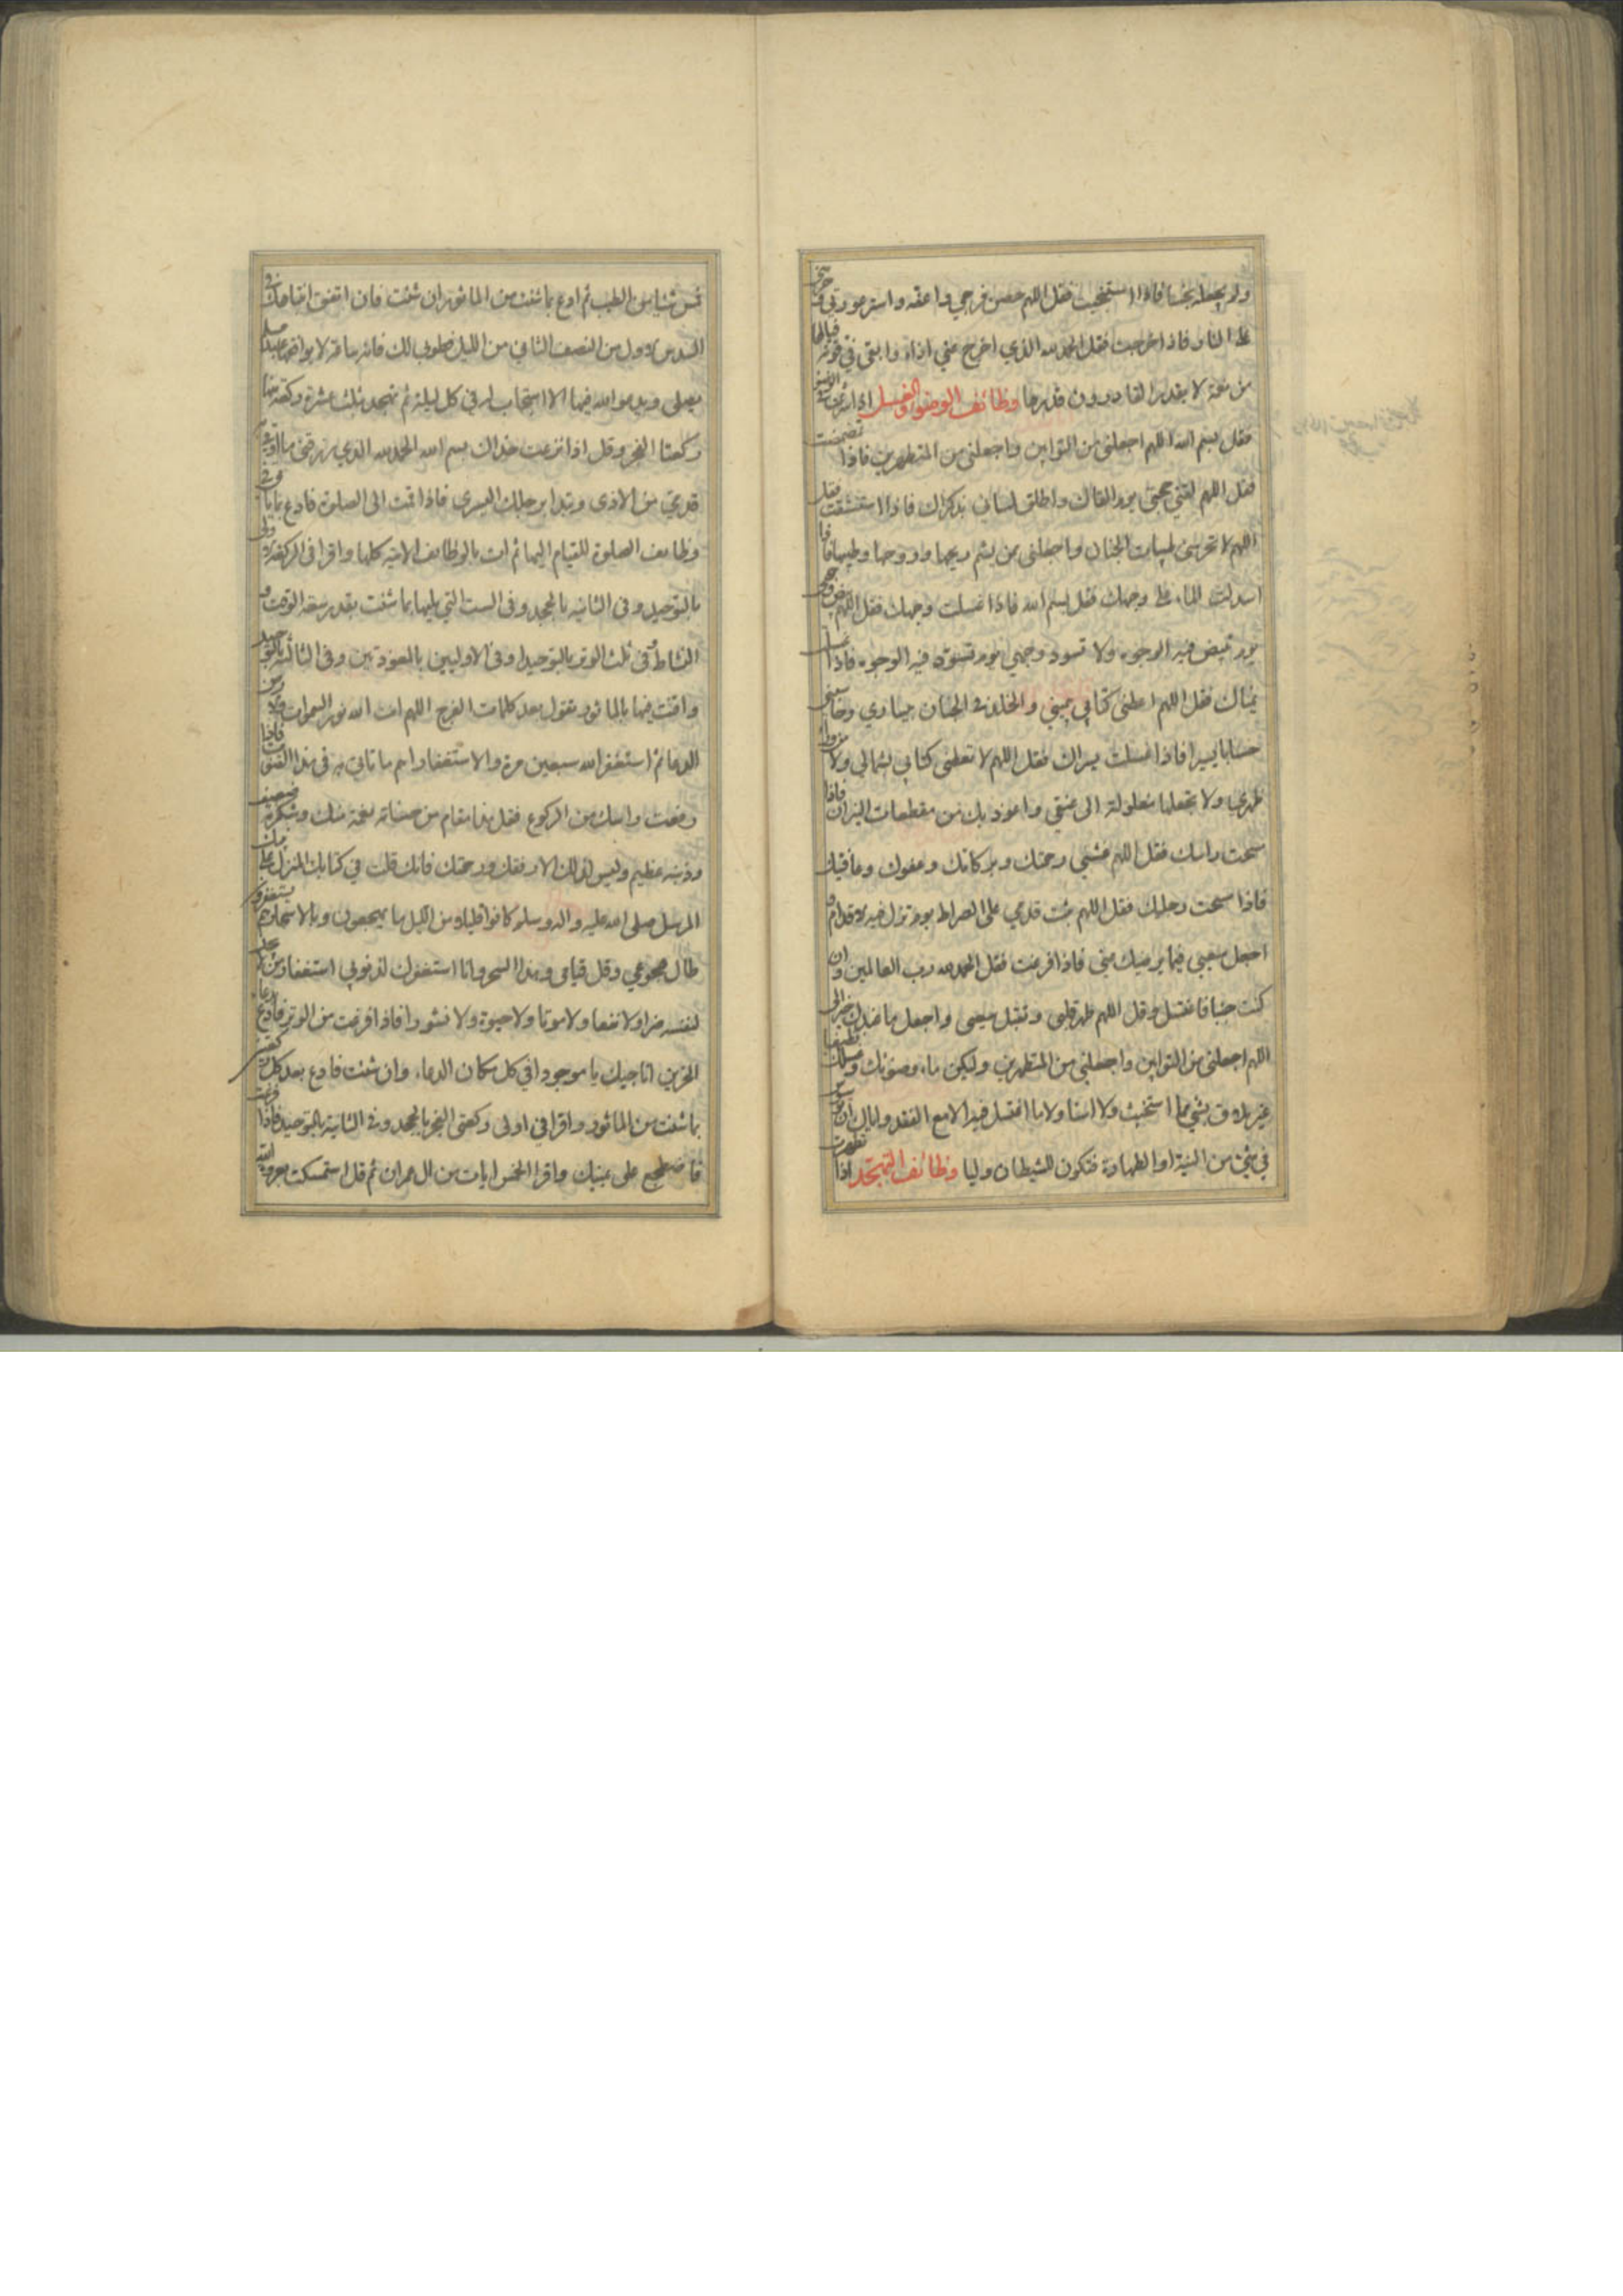 ولم يجعله نجسا فاذا استنجيت فقل اللهم حصن فرجي و اعفه و استر عورتي و حرمني
على النار فاذا خرجت فقل الحمد لله الذي اخرج عني اذاه وابقى في قوته فيالها
من نعمة لا يقدر القادرون قدرها وظائف الوضوء والغسل اذا
فقل بسم الله اللهم اجعلني من التوابين واجعلني من المتطهرين فاذا تمضمضت
فقل اللهم لقني حجتي يوم القاك واطلق لساني بذكراك فاذا استنشقت فقل
اللهم لا تحرمني طيبات الجنان واجعلني ممن يشم ريحها وروحها وطيبها فاذا
اسدلت الماء على وجهك فقل بسم الله فاذا غسلت وجهك فقل اللهم بيض وجهي
يوم تبيض فيه الوجوه ولا تسود وجهي يوم تسود فيه الوجوه فاذا غسلت
يمناك فقل اللهم اعطني كتابي بيميني والخلد في الجنان بيساري وحاسبني
حسابا يسيرا فاذا غسلت يسراك فقل اللهم لا تعطني كتابي بشمالي ولا من وراء
ظهري ولا تجعلها مغلولة الى عنقي واعوذ بك من مقطعات النيران فاذا
مسحت راسك فقل اللهم غشني رحمتك وبركاتك وعفوك وعافيتك
فاذا مسحت رجليك فقل اللهم ثبت قدمي على الصراط يوم تزل فيه الاقدام و
اجعل سعيي فيما يرضيك عني فاذا فرغت فقل الحمد لله رب العالمين وان
كنت جنبا فاغتسل وقل اللهم طهر قلبي وتقبل سعيي واجعل ما عندك خيرا لي
اللهم اجعلني من التوابين واجعلني من المتطهرين وليكن ماء وضوئك وغسلك نظيفا
في شيء من النية او الطهارة فتكون للشيطان وليا وظائف التهجد اذا تطهرت
فمس شيئا من الطيب ثم ادع بما شئت من الماثور ان شئت فان اتفق انتباهك في
السدس الاول من النصف الثاني من الليل فطوبى لك فانه ساعة لا يوافقها عبد مسلم
يصلي ويدعو الله فيها الا استجاب له في كل ليلة ثم تهجد بثلث عشرة ركعة منها
ركعتا الفجر وقل اذا نزعت حذاك بسم الله الحمد لله الذي رزقني ما اوقي به
قدمي من الاذى وتبدا برجلك اليسرى فاذا قمت الى الصلوة فادع بما ياتي في
وظايف الصلوة للقيام اليها ثم ات بالوظائف الاتية كلها واقرا في الركعة الاولى
بالتوحيد وفي الثانية بالجحد وفي الست التي يليها بما شئت بقدر سعة الوقت و
النشاط وفي ثلث الوتر بالتوحيد او في الاوليين بالمعوذتين وفي الثالثة بالتوحيد
واقنت فيها بالماثور تقول بعد كلمات الفرج اللهم انت الله نور السموات والارض
الدعا ثم استغفر الله سبعين مرة والاستغفار اهم ما تاتي به في هذا القنوت فاذا
رفعت راسك من الركوع فقل هذا مقام من حسناته نعمة منك وشكره ضعيف
وذنبه عظيم وليس لذلك الا رفقك ورحمتك فانك قلت في كتابك المنزل على نبيك
المرسل صلى الله عليه واله وسلم كانوا قليلا من الليل ما يهجعون وبالاسحار هم يستغفرون
طال هجوعي وقل قيامي وهذا السحر وانا استغفرك لذنوبي استغفار من لا يملك
لنفسه ضرا ولا نفعا ولا موتا ولا حيوة ولا نشورا فاذا فرغت من الوتر فادع دعاء
الحزين اناجيك يا موجودا في كل مكان الدعاء وان شئت فادع بعد كل ركعتين
بما شئت من الماثور واقرا في اولى ركعتي الفجر بالجحد وفي الثانية بالتوحيد فاذا فرغت
فاضطجع على يمينك واقرا الخمس ايات من ال عمران ثم قل استمسكت بعروة الله